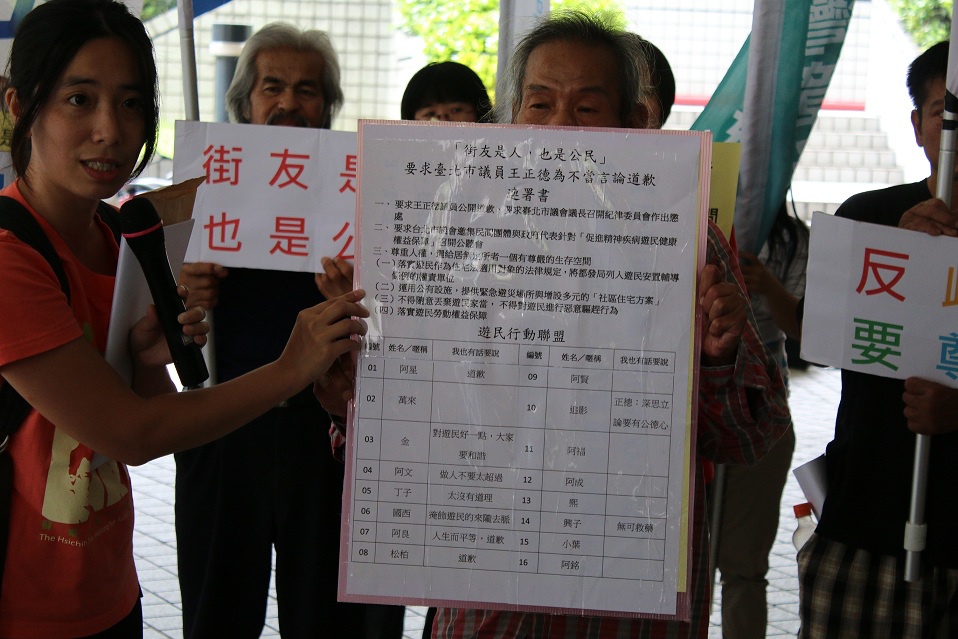 街友是
也是公
「街友是人，也是公民」
要求臺北市議員王正德為不當言論道歉
連署書
一、要求王正德議員公開道歉，要求臺北市議會議長召開紀律委員會作出懲
處
二、要求台北市議會邀集民間團體與政府代表針對「促進精神疾病遊民健康
權益保障」召開公聽會
三、尊重人權，需給居無住所者一個有尊嚴的生存空間
(一)落實遊民作為住宅法適用對象的法律規定，將都發局列入遊民安置輔導
的權責單位
(二)運用公有設施，提供緊急避災場所與增設多元的「社區住宅方案」
(三)不得隨意丟棄遊民家當，不得對遊民進行惡意驅趕行為
(四)落實遊民勞動權益保障
遊民行動聯盟
編號 姓名/暱稱 我也有話要說 編號 姓名/暱稱 我也有話要說
01 阿星 道歉 09 阿賢
02 萬來 10 追影 正德：深思立
論要有公德心
03 金 對遊民好一點，大家
要和諧 11 阿福
04 阿文 做人不要太超過 12 阿成
05 丁子 太沒有道理 13 熙
06 國西 掩飾遊民的來龍去脈 14 興子 無可救藥
07 阿良 人生而平等，道歉 15 小葉
08 松柏 道歉 16 阿銘
反
要尊
The Hsichih